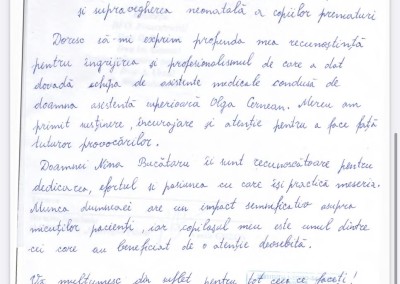 și supravegherea neonatală a copiilor prematuri
Doresc să-mi exprim profunda mea recunoștință
pentru îngrijirea și profesionalismul de care a dat
dovadă echipa de asistente medicale condusă de
doamna asistentă superioară Olga Cornean. Mereu am
primit susținere, încurajare și atenție pentru a face față
tuturor provocărilor.
Doamnei Nina Bucătaru îi sunt recunoscătoare pentru
dedicarea, efortul și pasiunea cu care își practică meseria.
Munca dumneaei are un impact semnificativ asupra
micuților pacienți, iar copilașul meu este unul dintre
cei care au beneficiat de o atenție deosebită.
Vă mulțumesc din suflet pentru tot ceea ce faceți!